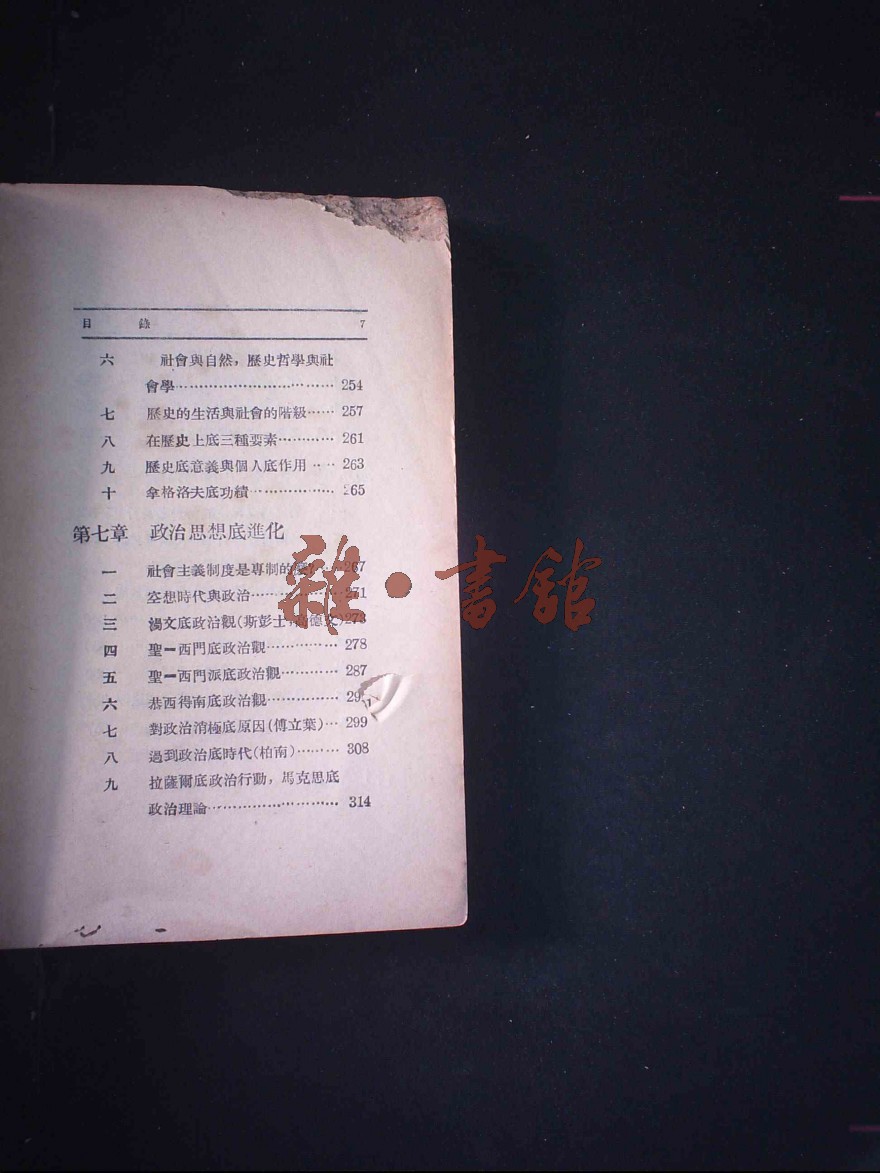 目 錄 7
六 社會與自然，歷史哲學與社
會學……………………………… 254
七 歷史的生活與社會的階級…… 257
八 在歷史上底三種要素………… 261
九 歷史底意義與個人底作用 …… 263
十 拿格洛夫底功績……………… 265
第七章 政治思想底進化
一 社會主義制度是專制的 267
二 空想時代與政治……………… 271
三 漫文底政治觀(斯彭士， 德文) 273
四 聖一西門底政治觀…………… 278
五 聖一西門派底政治觀………… 287
六 恭西得南底政治觀…………… 29
七 對政治消極底原因(傅立葉)… 299
八 過到政治底時代(柏南)……… 308
九 拉薩爾底政治行動，馬克思底
政治理論………………………… 314
雜·書館